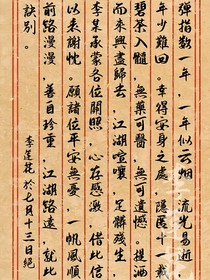 彈指數年，一年似云烟，流光易逝
年少難回。幸得安身之處，隱匿十一載
碧茶入髓，無藥可醫，無可遺憾。提酒
而來興盡歸去，江湖喧嚷，足殘生
李某承蒙各位關照，心存感激，借此信
以表謝忱。願諸位平安無憂，一帆風順
前路漫漫，善自珍重，江湖路遠，就此
訣別。
李蓮花於七月十三日絕